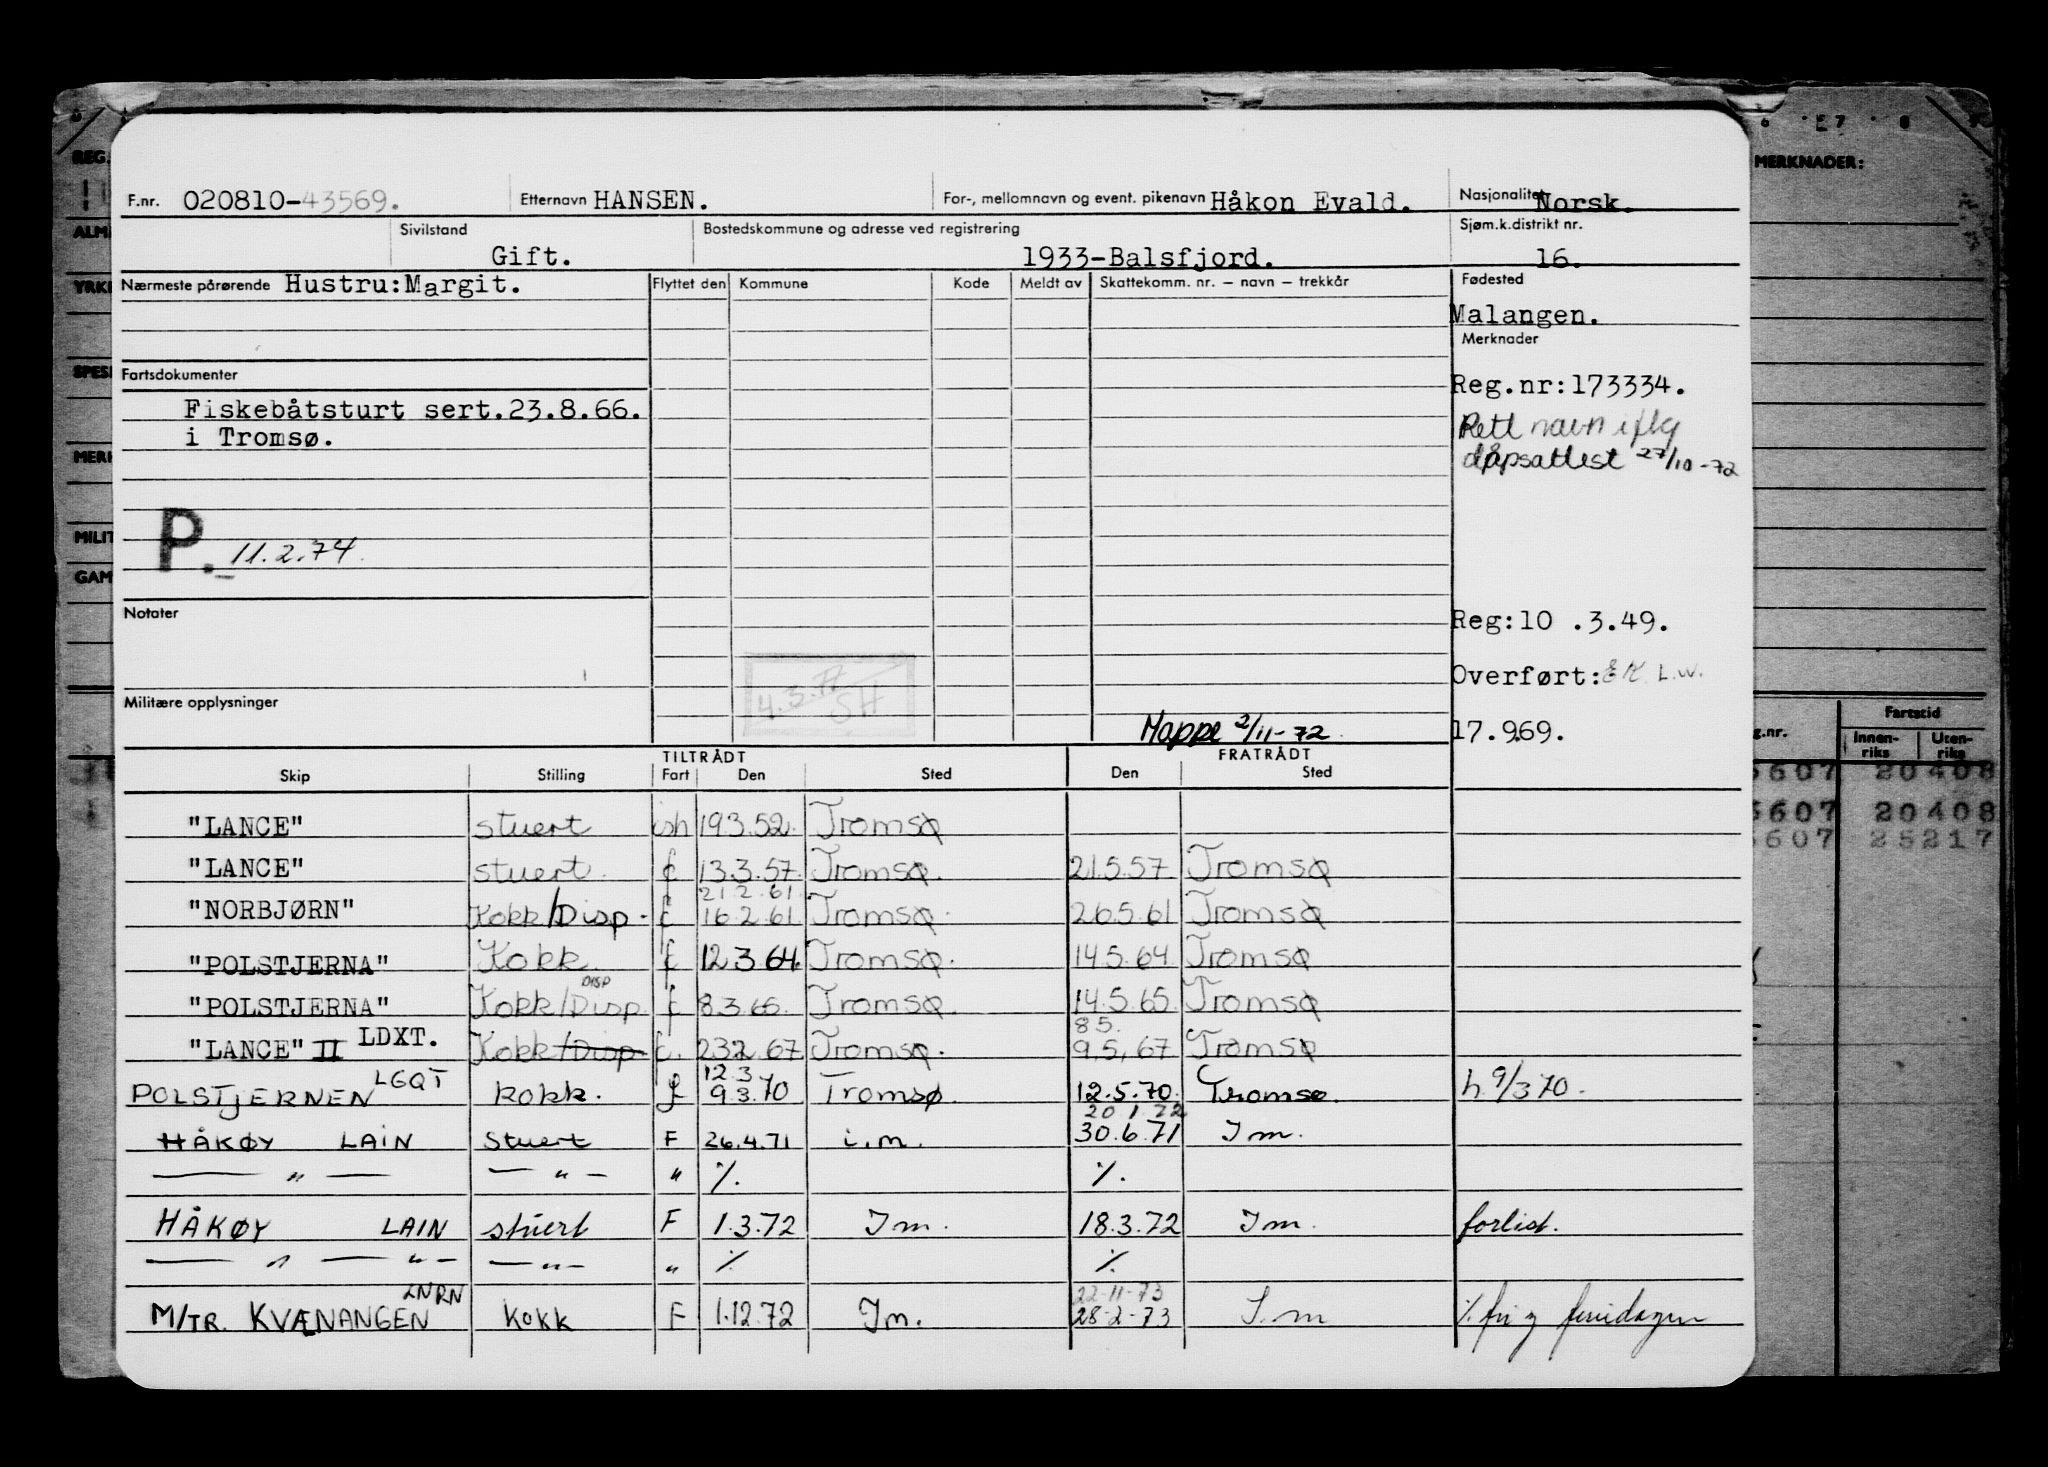 F.nr. 020810-43569. Etternavn HANSEN. For-, mellomnavn og event. pikenavn Håkon Evald. Nasjonalitet Norsk.
Sivilstand Gift. Bostedskommune og adresse ved registrering 1933-Balsfjord. Sjøm.k.distrikt nr. 16.
Nærmeste pårørende Hustru:Margit. Flyttet den Kommune Kode Meldt av Skattekomm. nr. – navn – trekkår Fødested
Malangen.
Merknader
Fartsdokumenter
Reg.nr:173334.
Fiskebåtsturt sert.23.8.66.
i Tromsø.
Rett navn iflg
dåpsattest 27/10-72
P. 11.2.74
Notater
Reg:10 .3.49.
4.3.77
SH
Overført: EK L.W.
Militære opplysninger
Mappe 2/11-72
17.969.
TILTRÅDT FRATRÅDT
Skip Stilling Fart Den Sted Den Sted
"LANCE" stuert ish 19.3.52. Tromsø
"LANCE" stuert. f 13.3.57. Tromsø. 21.5.57 Tromsø
21.2.61.
"NORBJØRN" Kokk/Disp. f 16.2.61 Tromsø. 26.5.61 Tromsø
"POLSTJERNA" Kokk f 12.3.64. Tromsø. 14.5.64 Tromsø
DISP
"POLSTJERNA" Kokk/Disp f 8.3.65. Tromsø. 14.5.65 Tromsø
8.5.
"LANCE" II LDXT. Kokk/Disp f. 23.2.67 Tromsø. 9.5.67 Tromsø
12.3
POLSTJERNEN LGQT kokk. f 9.3.70 Tromsø. 12.5.70. Tromsø. h 9/3 70.
20 1 72
HÅKØY LAIN stuert F 26.4.71 i.m. 30.6.71 Im.
— " — — " — " %. %.
HÅKØY LAIN stuert F 1.3.72 Im. 18.3.72 Im. forlist.
— " — " — — " — " % %.
22-11-73
M/TR. KVÆNANGEN LNRN kokk F 1.12.72 Im. 28-2-73 I.m %. fri
REG.
ALM
YRK
SPES
MERK
MILIT
GAM
MERKNADER:
g.nr. Fartstid
Innen-riks Uten-riks
5607 20408
5607 20408
5607 25217